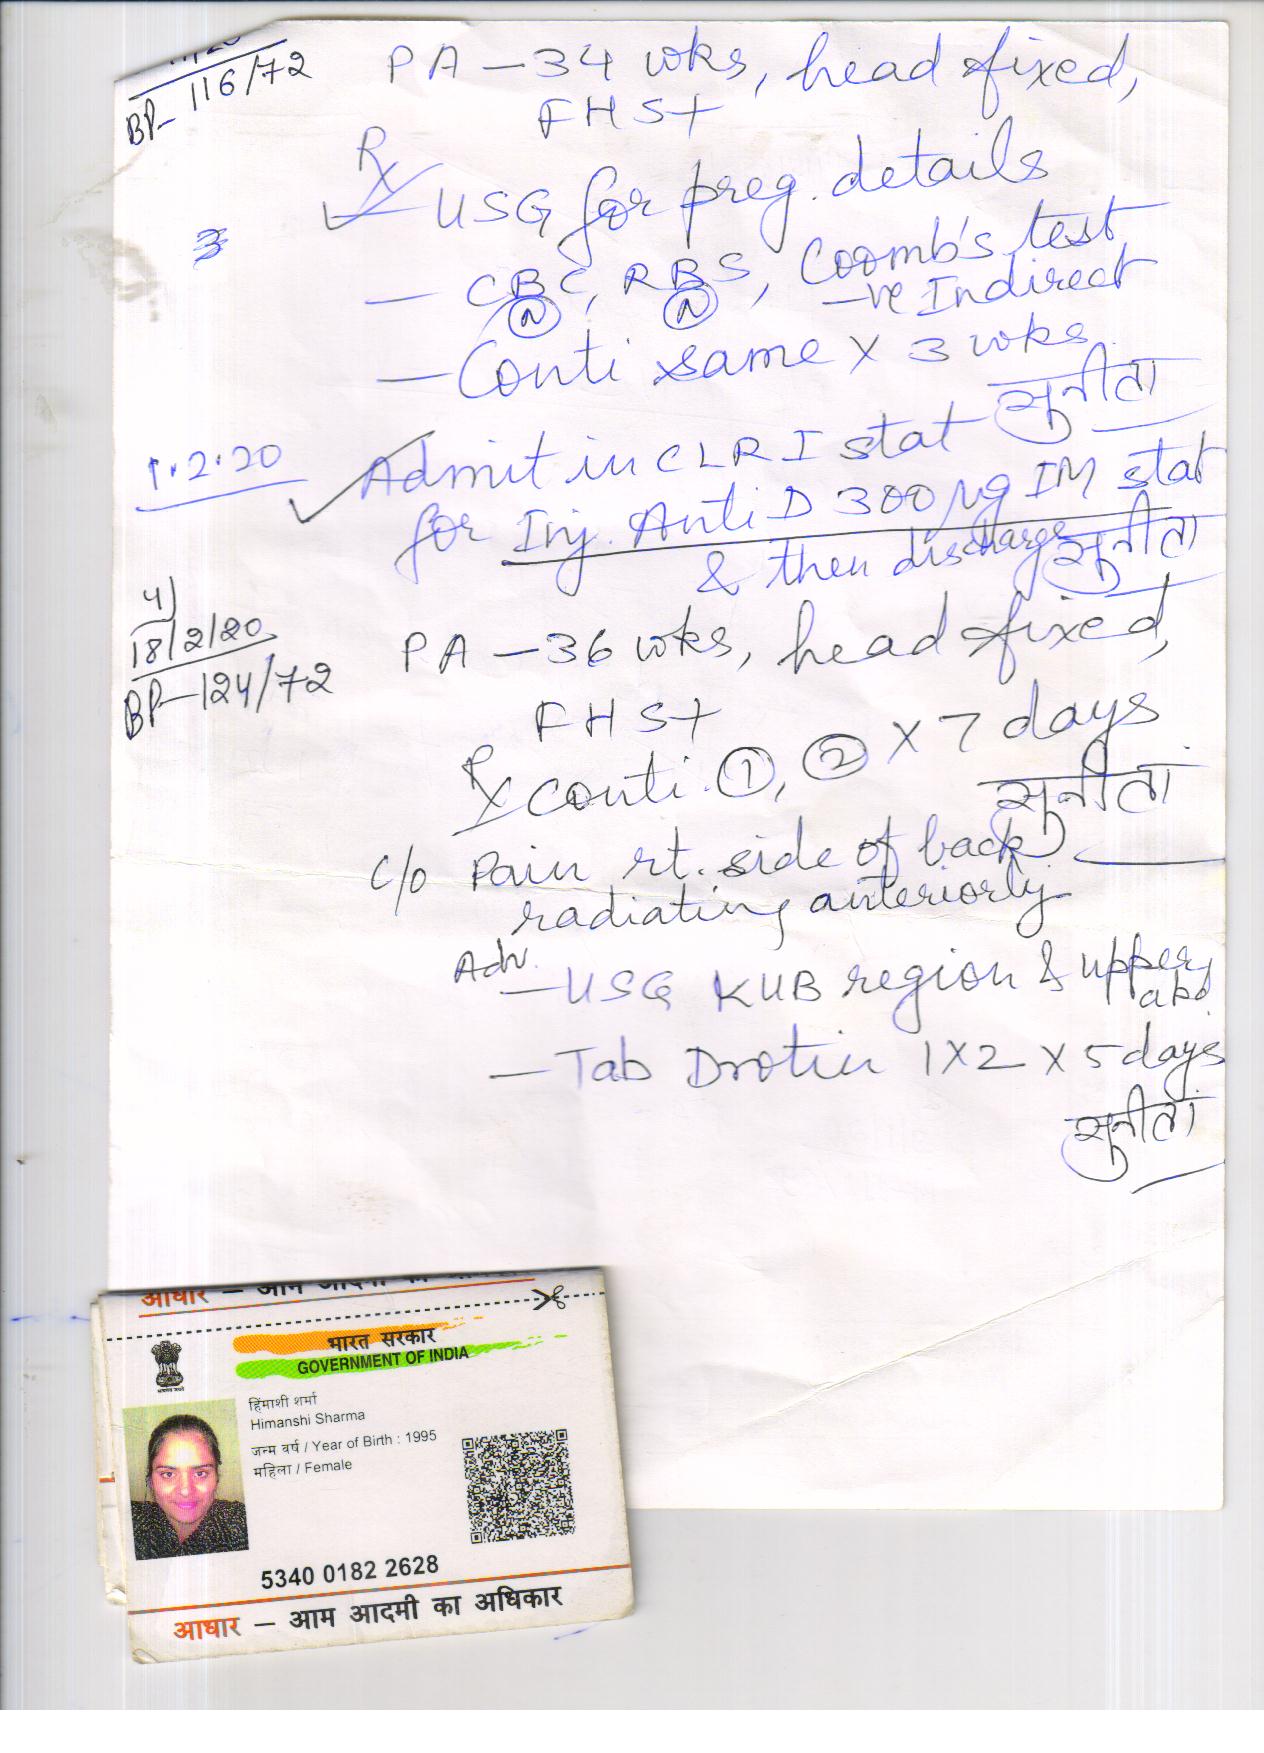 BP- 116/72
PA - 34 wks, head fixed,
FHS+
Rx
- USG for preg. details
3
- CBC, RBS, Coomb's test
N N -ve Indirect
- Conti same x 3 wks
सुनीता
1.2.20
Admit in CLR I stat
for Inj. Anti D 300 µg IM stat
& then discharge
सुनीता
4)
18/2/20
BP-124/72
PA - 36 wks, head fixed,
FHS+
Rx conti. 1, 2 x 7 days
सुनीता
c/o Pain rt. side of back
radiating anteriorly
Adv.
- USG KUB region & upper
abd.
- Tab Drotin 1x2 x 5 days
सुनीता
आधार – आम आदमी का
भारत सरकार
GOVERNMENT OF INDIA
हिंमाशी शर्मा
Himanshi Sharma
जन्म वर्ष / Year of Birth : 1995
महिला / Female
5340 0182 2628
आधार – आम आदमी का अधिकार